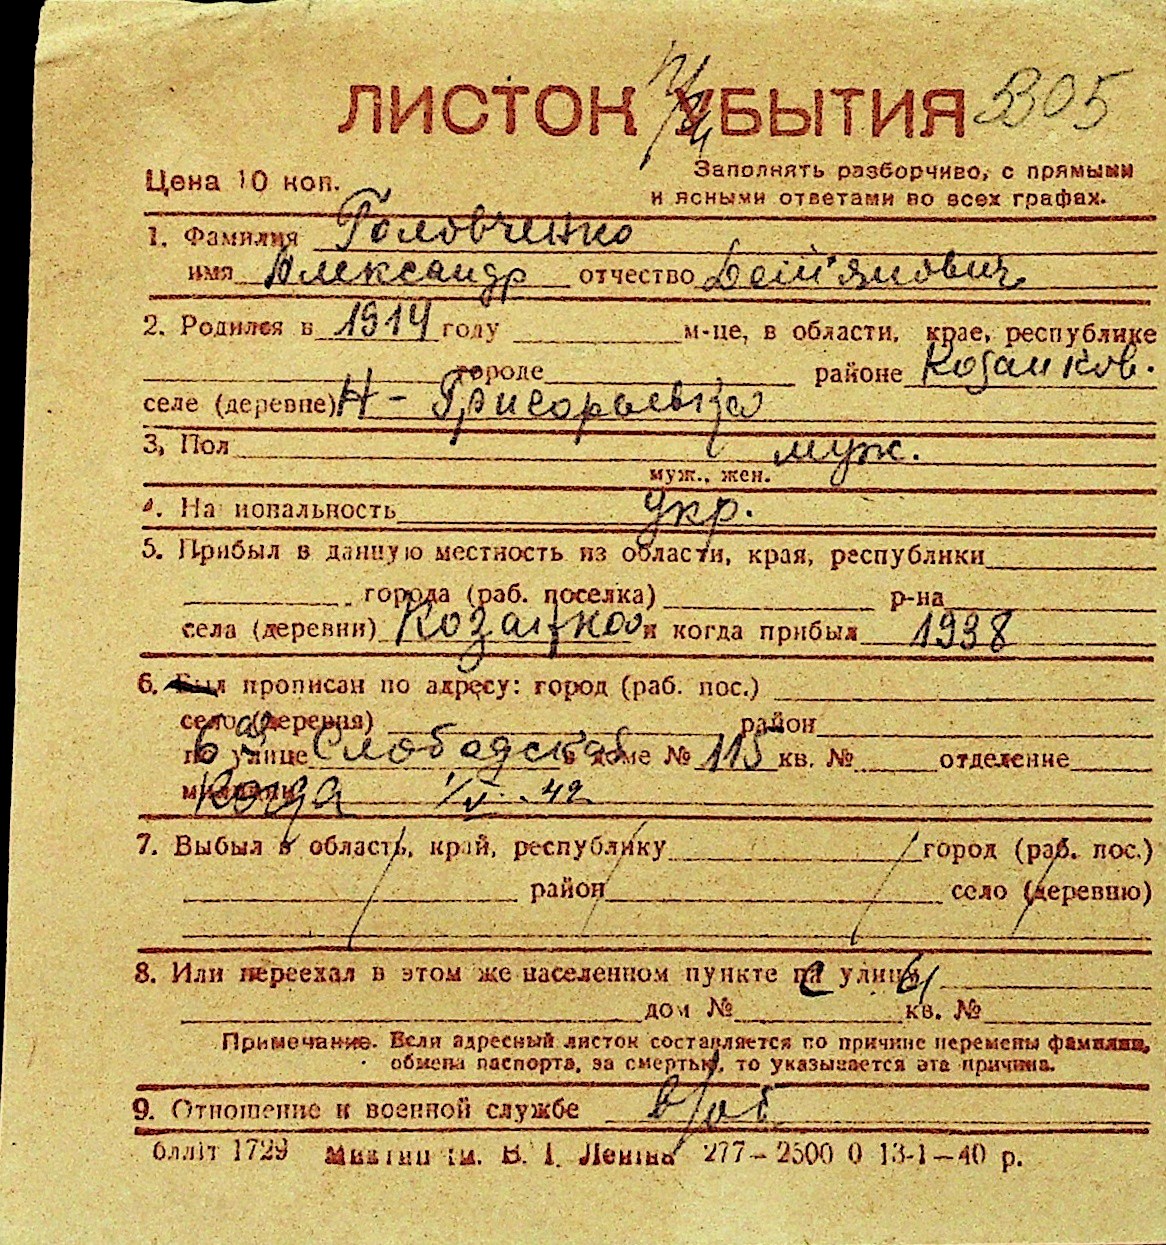 ЛИСТОК УБЫТИЯ 3305
Цена 10 коп.
Заполнять разборчиво, с прямыми
и ясными ответами во всех графах.
1. Фамилия Головченко
имя Александр отчество Дем'янович
2. Родился в 1914 году м-це, в области, крае, республике
городе районе Козанков.
селе (деревне) Н-Григорьевка
3, Пол муж.
муж., жен.
4. Национальность укр.
5. Прибыл в данную местность из области, края, республики
города (раб. поселка) р-на
села (деревни) и когда прибыл 1938
6. Был прописан по адресу: город (раб. пос.)
село (деревня) район
по улице 6ая Слободская в доме № 115 кв. № отделение
милиции Когда 1/V-42
7. Выбыл в область, край, республику город (раб. пос.)
район село (деревню)
8. Или переехал в этом же населенном пункте на улицу
дом № кв. №
Примечание. Если адресный листок составляется по причине перемены фамилии,
обмена паспорта, за смертью, то указывается эта причина.
9. Отношение к военной службе в/об
бліт 1729 ім. В. І. Леніна 277–2500 0 13-1–40 р.